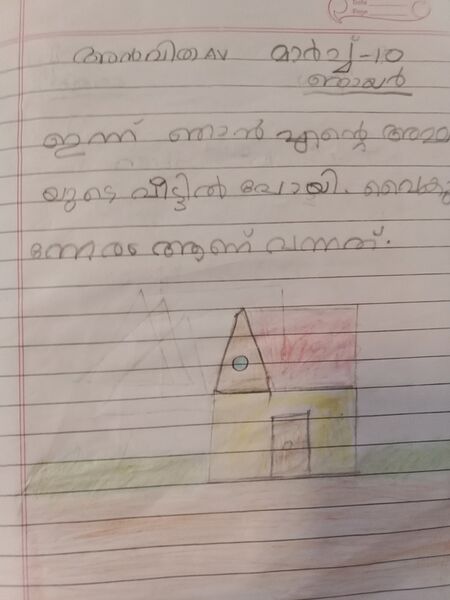 അൻവിത AV മാർച്ച്-10
ഞായർ
ഇന്ന് ഞാൻ എന്റെ അമ്മ
യുടെ വീട്ടിൽ പോയി. വൈകു
ന്നേരം ആണ് വന്നത്.